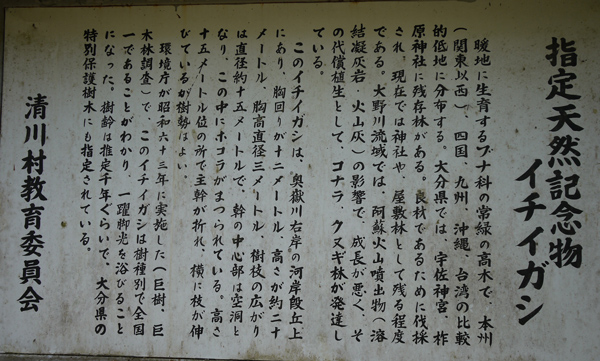 指定天然記念物
イチイガシ
暖地に生育するブナ科の常緑の高木で、本州
(関東以西)、四国、九州、沖縄、台湾の比較
的低地に分布する。大分県では、宇佐神宮、柞
原神社に残存林がある。良材であるために伐採
され、現在では神社や、屋敷林として残る程度
である。大野川流域では、阿蘇火山噴出物へ溶
結凝灰岩、火山灰)の影響で、成長が悪く、そ
の代償植生として、コナラ、クヌギ林が発達し
ている
このイチイガシは、奥嶽川右岸の河岸段丘上
にあり、胸回りが十二メートル、高さが約二十
メートル、胸高直径三メートル、樹枝の広がり
は直径約十五メートルで、幹の中心部は空洞と
なり、この中にホコラがまつられている。高さ
十五メートル位の所で主幹が折れ、横に枝が伸
びているが樹勢はよい。
環境庁が昭和六十三年に実施した(巨樹、巨
木林調査)で、このイチイガシは樹種別で全国
一であることがわかり、一躍脚光を浴びること
になった。樹齢は推定千年ぐらいで、大分県の
特別保護樹木にも指定されている。
清川村教育委員会